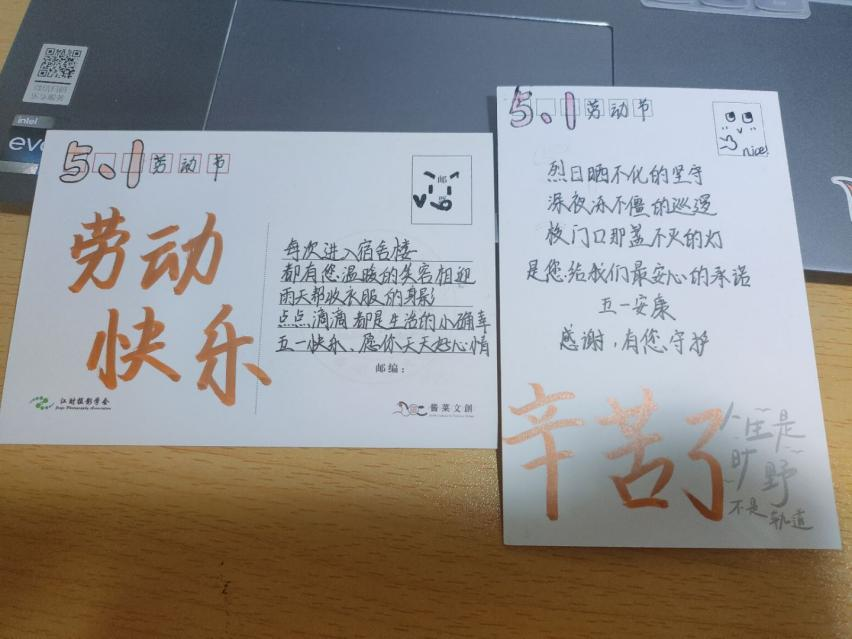 intel
evo
5、1 劳动节
劳动
快乐
邮
每次进入宿舍楼
都有您温暖的笑容相迎
雨天帮收衣服的身影
点点滴滴都是生活的小确幸
五一快乐、愿你天天好心情
邮编：
江财摄影学会
酱菜文创
5、1 劳动节
nice!
烈日晒不化的坚守
深夜冻不僵的巡逻
校门口那盏不灭的灯
是您给我们最安心的承诺
五一安康
感谢，有您守护
辛苦了
人生是
旷野
不是轨道